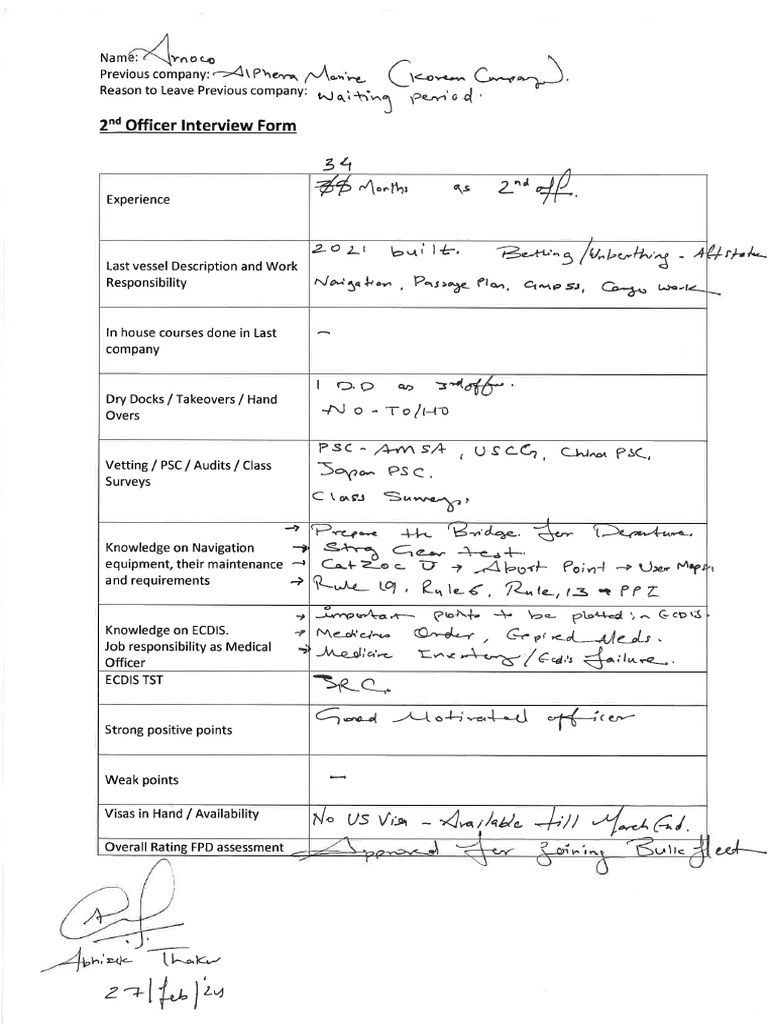 Name: Arnoco
Previous company: Alphera Marine (Korean Company).
Reason to Leave Previous company: Waiting period.
2nd Officer Interview Form
34
Experience
Months as 2nd off.
Last vessel Description and Work Responsibility
2021 built. Berthing/Unberthing - Aft station
Navigation, Passage Plan, GMDSS, Cargo work
In house courses done in Last company
-
Dry Docks / Takeovers / Hand Overs
1 D.D as 3rd offr.
-NO-TO/HO
Vetting / PSC / Audits / Class Surveys
PSC - AMSA, USCG, China PSC,
Japan PSC.
Class Surveys,
Knowledge on Navigation equipment, their maintenance and requirements
→ Prepare the Bridge for Departure.
→ Strg Gear test.
→ CatZoc U → Abort Point → User Maps
→ Rule 19, Rule 6, Rule, 13 → PPI
Knowledge on ECDIS.
Job responsibility as Medical Officer
→ important points to be plotted in ECDIS.
→ Medicine Order, Expired Meds.
→ Medicine Inventory/Ecdis failure.
ECDIS TST
JRC.
Strong positive points
Good Motivated officer
Weak points
-
Visas in Hand / Availability
No US Visa - Available till March End.
Overall Rating FPD assessment
Approved for Joining Bulk fleet
Abhisek Thakur
27/Feb/24